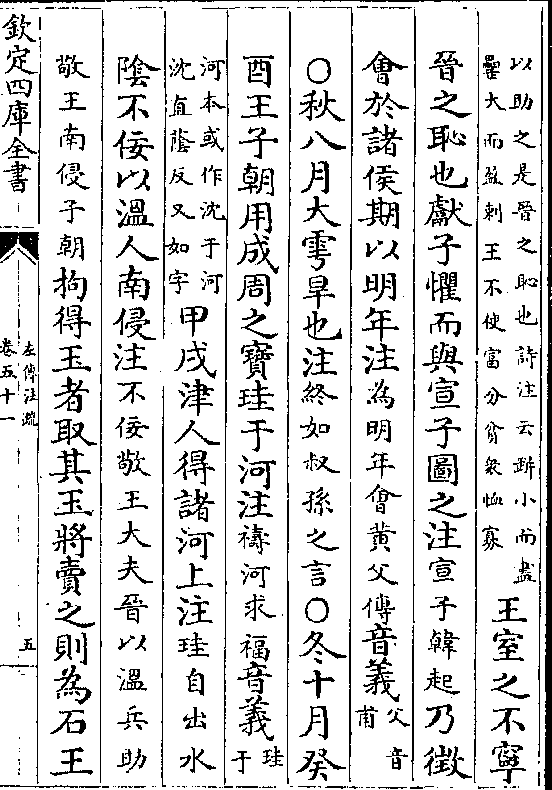 以助之是晉之恥也詩注云缾小而盡
罍大而盈刺王不使富分貧衆恤寡
王室之不寧
晉之恥也獻子懼而與宣子圖之注宣子韓起乃徵
會於諸侯期以明年注為明年會黄父傳音義父音甫
○秋八月大雩旱也注終如叔孫之言○冬十月癸
酉王子朝用成周之寶珪于河注禱河求福音義珪于
河本或作沈于河
沈直蔭反又如字
甲戌津人得諸河上注珪自出水
陰不佞以溫人南侵注不佞敬王大夫晉以溫兵助
敬王南侵子朝拘得玉者取其玉將賣之則為石王
欽定四庫全書
左傳注疏
卷五十一
五